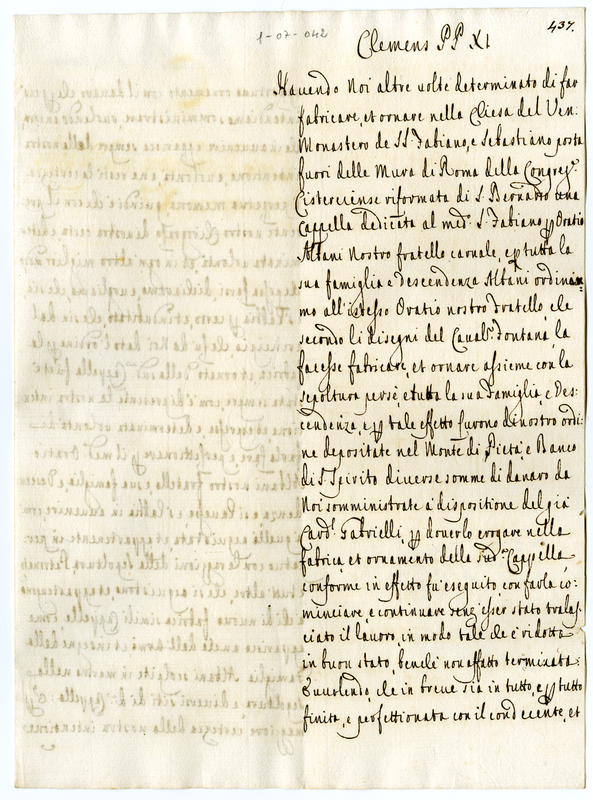 1-07-042
437.
Clemens PP XI
Havendo Noi altre volte determinato di far
fabricare, et ornare nella Chiesa del Ven:
Monastero de SS. Fabiano, e Sebastiano posta
fuori delle Mura di Roma della Congreg.
Cisterciense riformata di S. Bernardo una
Cappella dedicata al med. S. Fabiano Oratio
Albani Nostro fratello carnale, e tutta la
sua famiglia e descendenza Albani ordina
mo all'istesso Oratio nostro fratello che
secondo li disegni del Caval. Fontana, la
facesse fabricare, et ornare assieme con la
sepoltura per sè, e tutta la sua Famiglia, e Des-
cendenza, e tale effetto furono di nostro ordi-
ne depositate nel Monte di Pietà e Banco
di S. Spirito diverse somme di danaro da
Noi somministrate a' dispositione del già
Card. Gabrielli, doverlo erogare nella
fabrica, et ornamento della Cappella
conforme in effetto fu' eseguito, con farla co-
minciare, e continuare senz'esser stato tralas-
ciato il lavoro, in modo tale che è ridotta
in buon stato, benche non affatto terminata.
che in breve sia in tutto, e tutto
finita, e perfettionata con il condecente, et